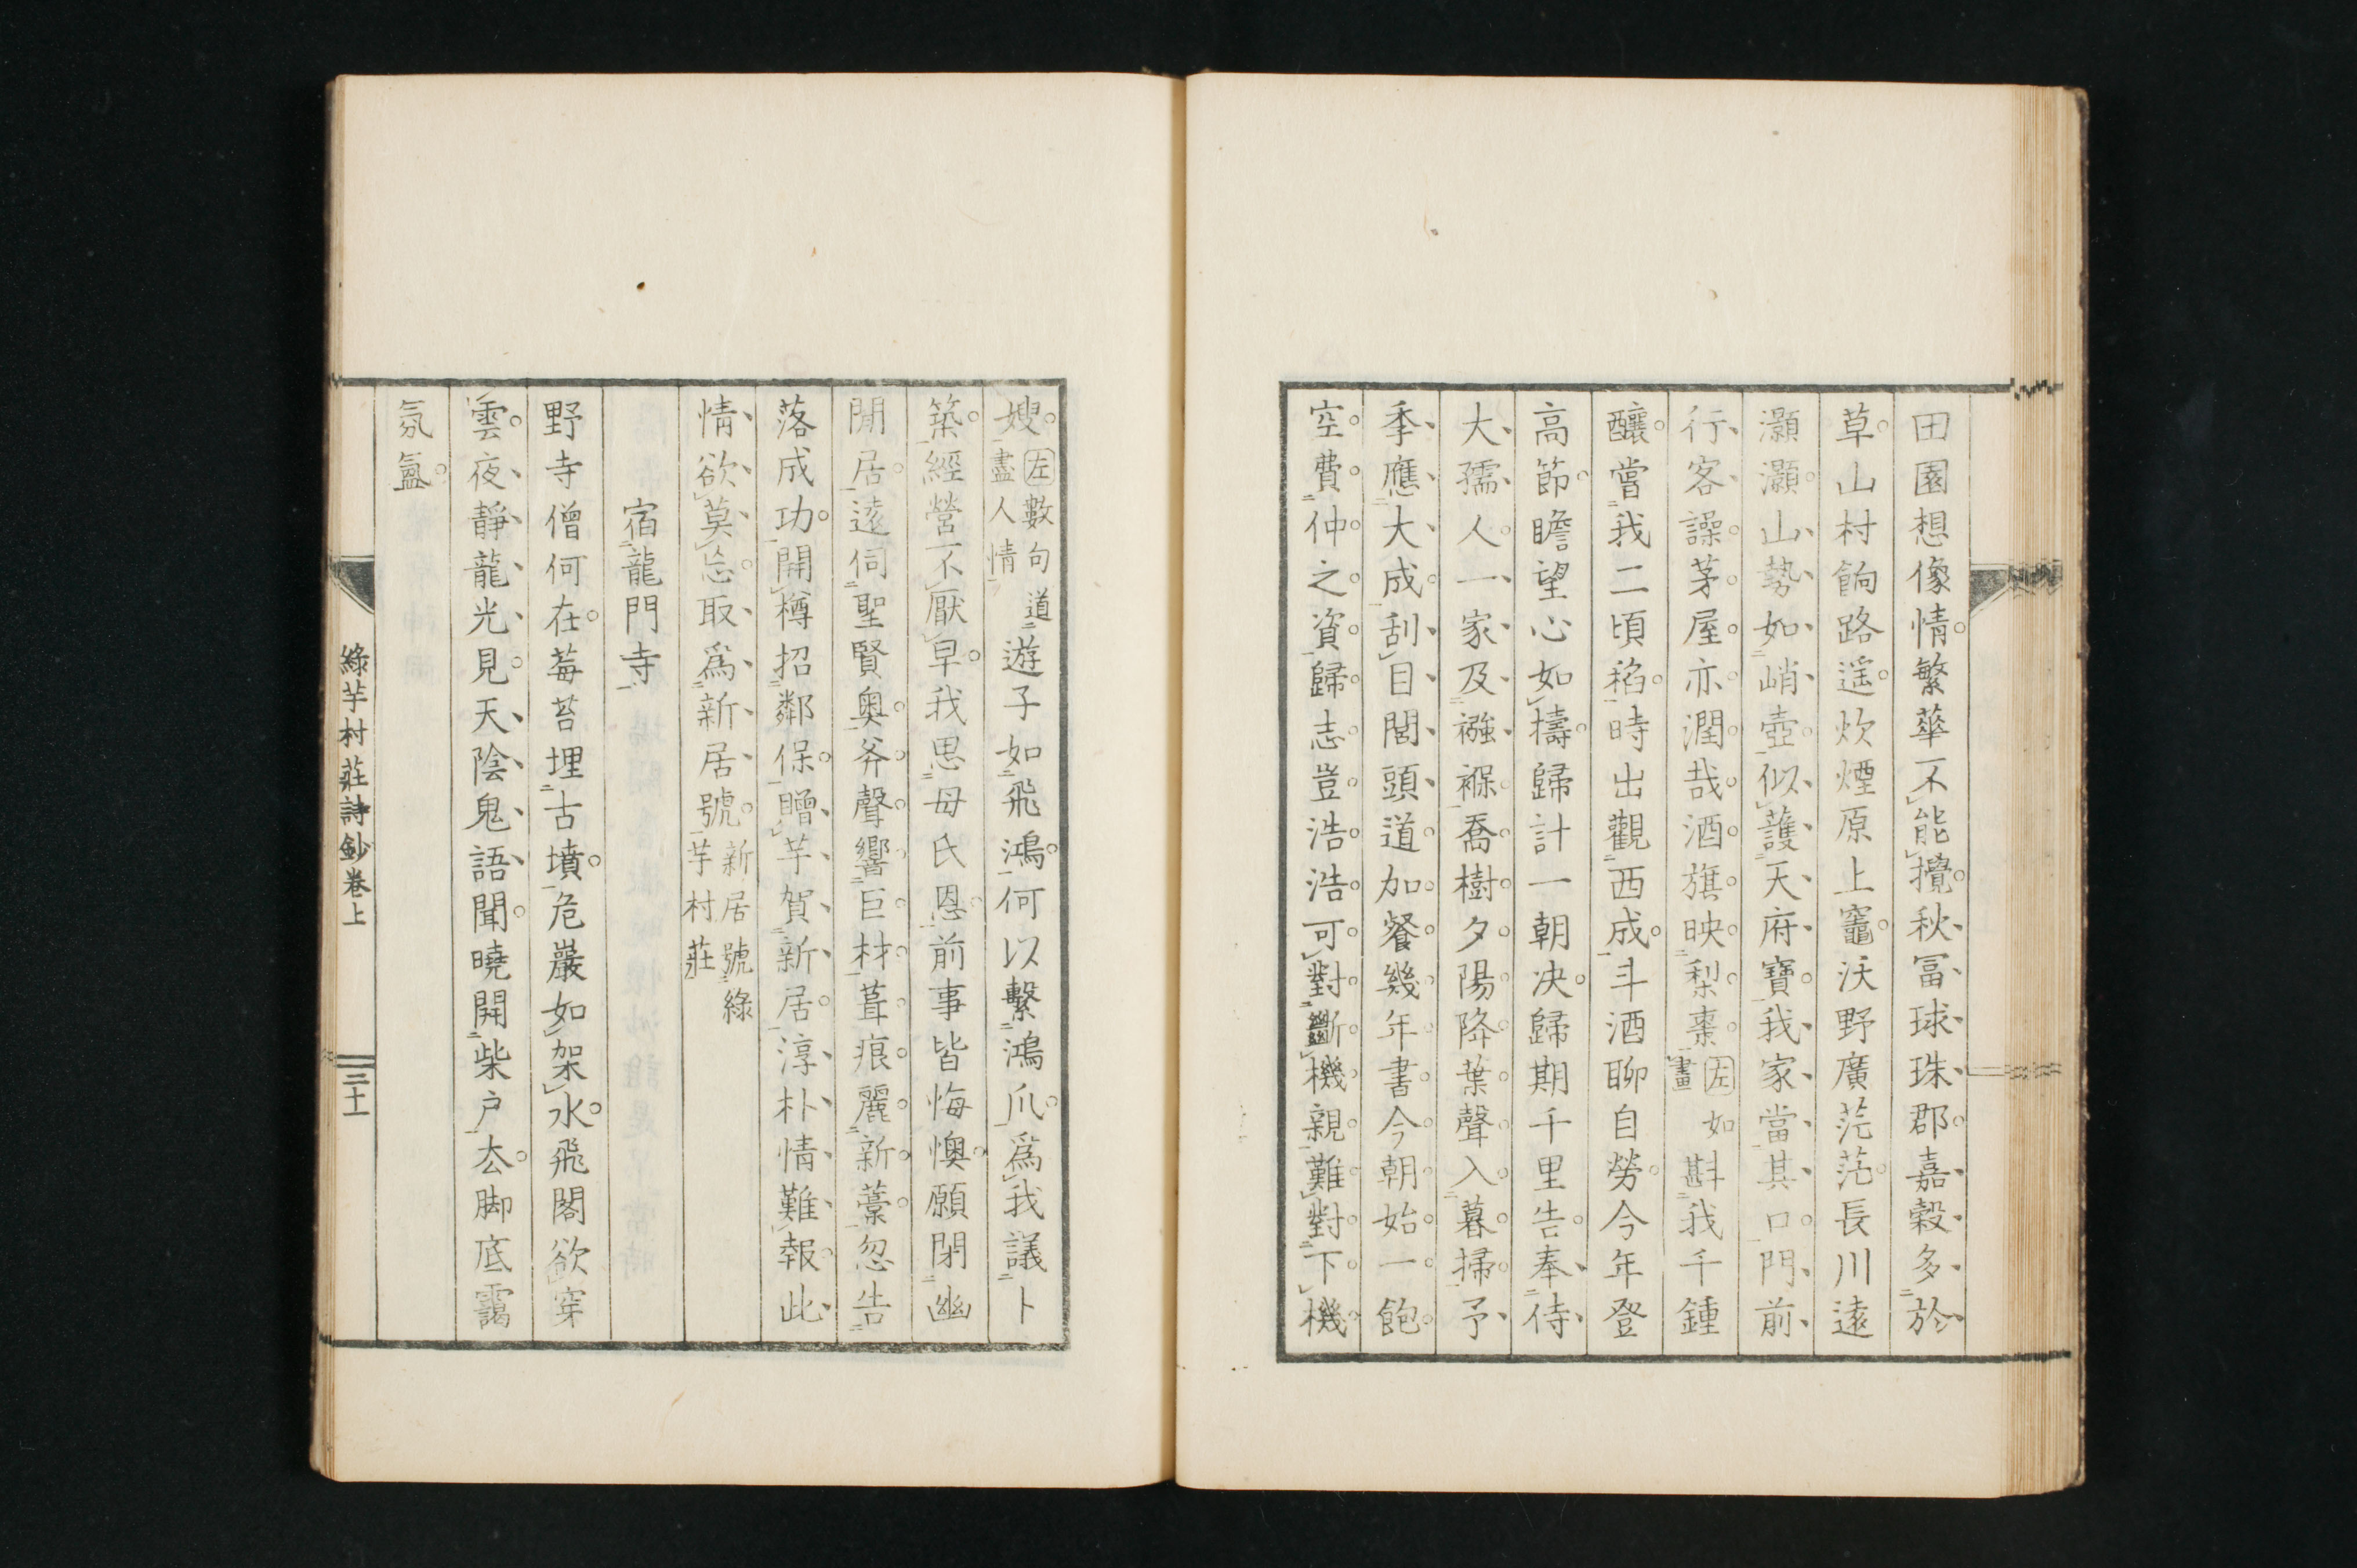 田園想像情繁華不能攪秋冨球珠郡嘉穀多於
草山村餉路遥炊煙原上竈沃野廣茫茫長川遠
灝灝山勢如峭壺似護天府寶我家當其口門前
行客譟茅屋亦潤哉酒旗映梨棗左如畫斟我千鍾
釀嘗我二頃稻時出觀西成斗酒聊自勞今年登
高節瞻望心如擣歸計一朝决歸期千里告奉侍
大孺人一家及襁褓喬樹夕陽降葉聲入暮掃予
季應大成刮目閭頭道加餐幾年書今朝始一飽
空費仲之資歸志豈浩浩可對斷機親難對下機
嫂左數句道盡人情遊子如飛鴻何以繫鴻爪爲我議卜
築經營不厭早我思母氏恩前事皆悔懊願閉幽
閒居遠伺聖賢奥斧聲響巨材葺痕麗新藁忽告
落成功開樽招鄰保贈芋賀新居淳朴情難報此
情欲莫忘取爲新居號新居號綠芋村莊
宿龍門寺
野寺僧何在莓苔埋古墳危巖如架水飛閣欲穿
雲夜靜龍光見天陰鬼語聞曉開柴户厺脚底靄
氛氳
綠芋村莊詩鈔卷上
三十一